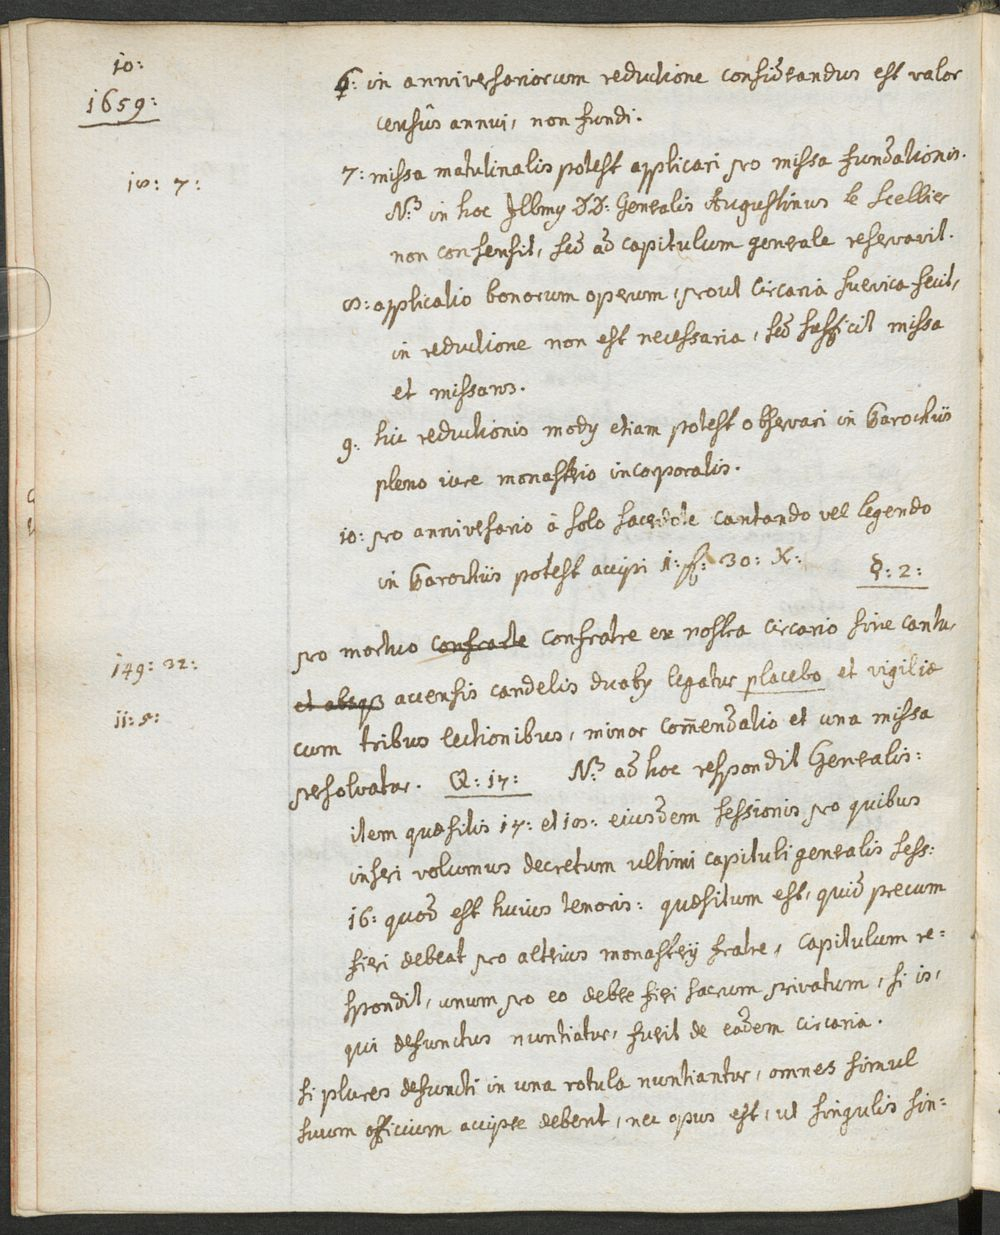 10:
1659:
6: in anniversariorum reductione considerandus est valor
censûs annui, non fundi.
18: 7:
7: missa matutinalis potest applicari pro missa fundationis.
N.3 in hoc Illmy DD: Generalis Augustinus le Scellier
non consensit, sed ad capitulum generale reservavit.
8: applicatio bonorum operum, prout Circaria Suevica fecit,
in reductione non est necessaria, sed sufficit missa
et missans.
9: hic reductionis mody etiam potest observari in Parochiis
pleno iure monasterio incorporatis.
10: pro anniversario à solo sacerdote cantando vel legendo
in Parochiis potest accipi 1: fl: 30: X:
Q: 2:
pro mortuo confrate confratre ex nostra circario sine cantu
149: 32:
et absq3 accensis candelis duaby legatur placebo et vigiliæ
11: 5:
cum tribus lectionibus, minor com̄endatio et una missa
persolvatur. Q: 17: N.3 ad hoc respondit Generalis:
item quæsitis 17: et 105: eiusdem sessionis pro quibus
inseri volumus decretum ultimi capituli generalis sess:
16: quod est huius tenoris: quæsitum est, quid precum
fieri debeat pro alterius monastery fratre, capitulum re=
spondit, unum pro eo debere fieri sacrum privatum, si is,
qui defunctus nuntiatur, fuerit de eadem circaria.
si plures defuncti in una rotula nuntiantur, omnes simul
suum officium accipere debent, nec opus est, ut singulis sin=